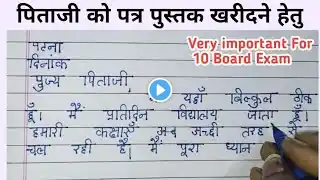 पिताजी को पत्र पुस्तक खरीदने हेतु
Very important For
10 Board Exam
पटना
दिनांक
पुज्य पिताजी,
यहाँ बिल्कुल ठीक
हूँ। मैं प्रतिदिन विद्यालय जाता हूँ।
हमारी कक्षाएँ अब अच्छी तरह से
चल रही है। मैं पूरा ध्यान